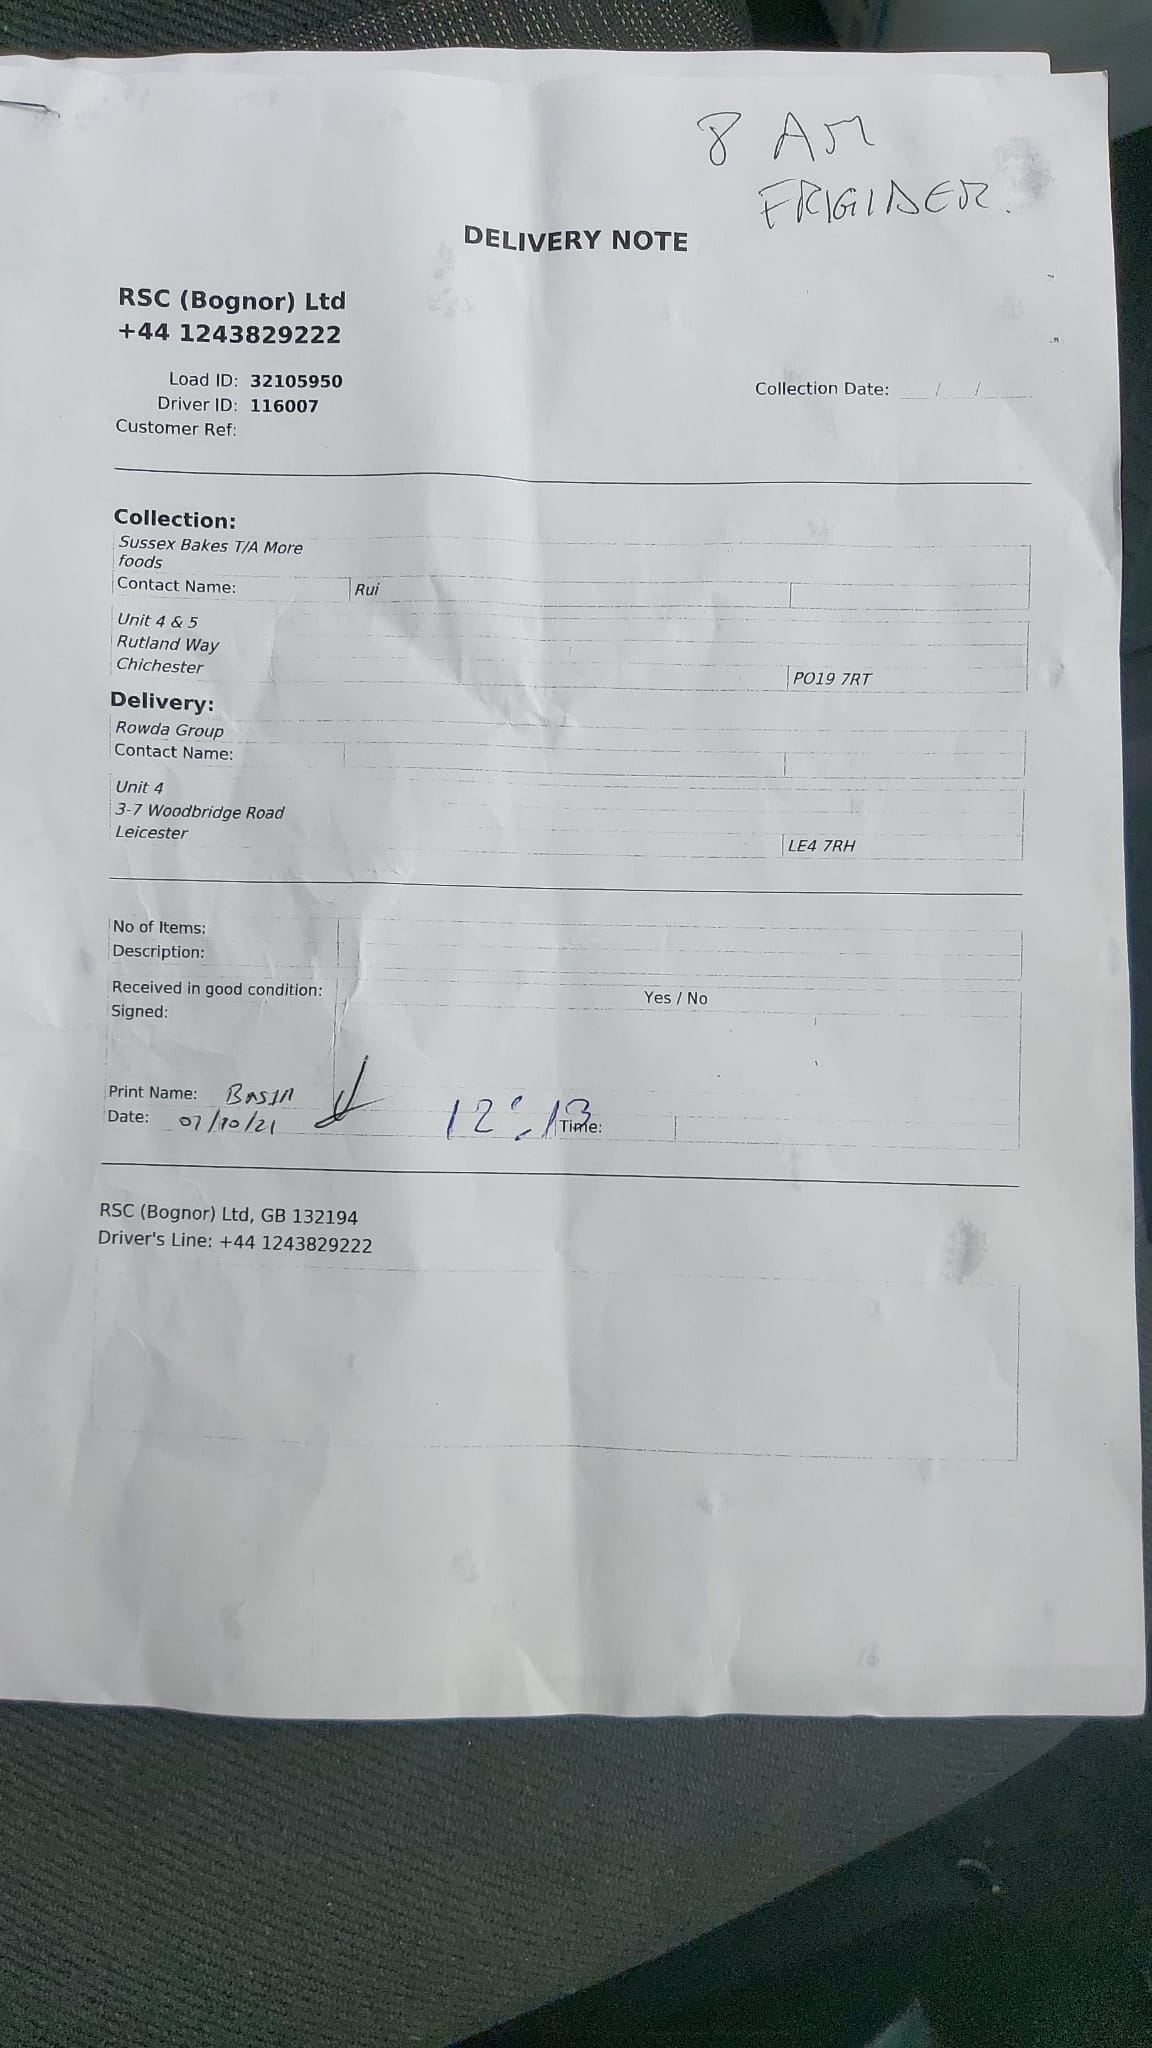 8 AM
FRIGIDER.
DELIVERY NOTE
RSC (Bognor) Ltd
+44 1243829222
Load ID: 32105950
Driver ID: 116007
Collection Date: / /
Customer Ref:
Collection:
Sussex Bakes T/A More
foods
Contact Name: Rui
Unit 4 & 5
Rutland Way
Chichester PO19 7RT
Delivery:
Rowda Group
Contact Name:
Unit 4
3-7 Woodbridge Road
Leicester LE4 7RH
No of Items:
Description:
Received in good condition: Yes / No
Signed:
Print Name:
Date: 07/10/21 12:13 Time:
RSC (Bognor) Ltd, GB 132194
Driver's Line: +44 1243829222